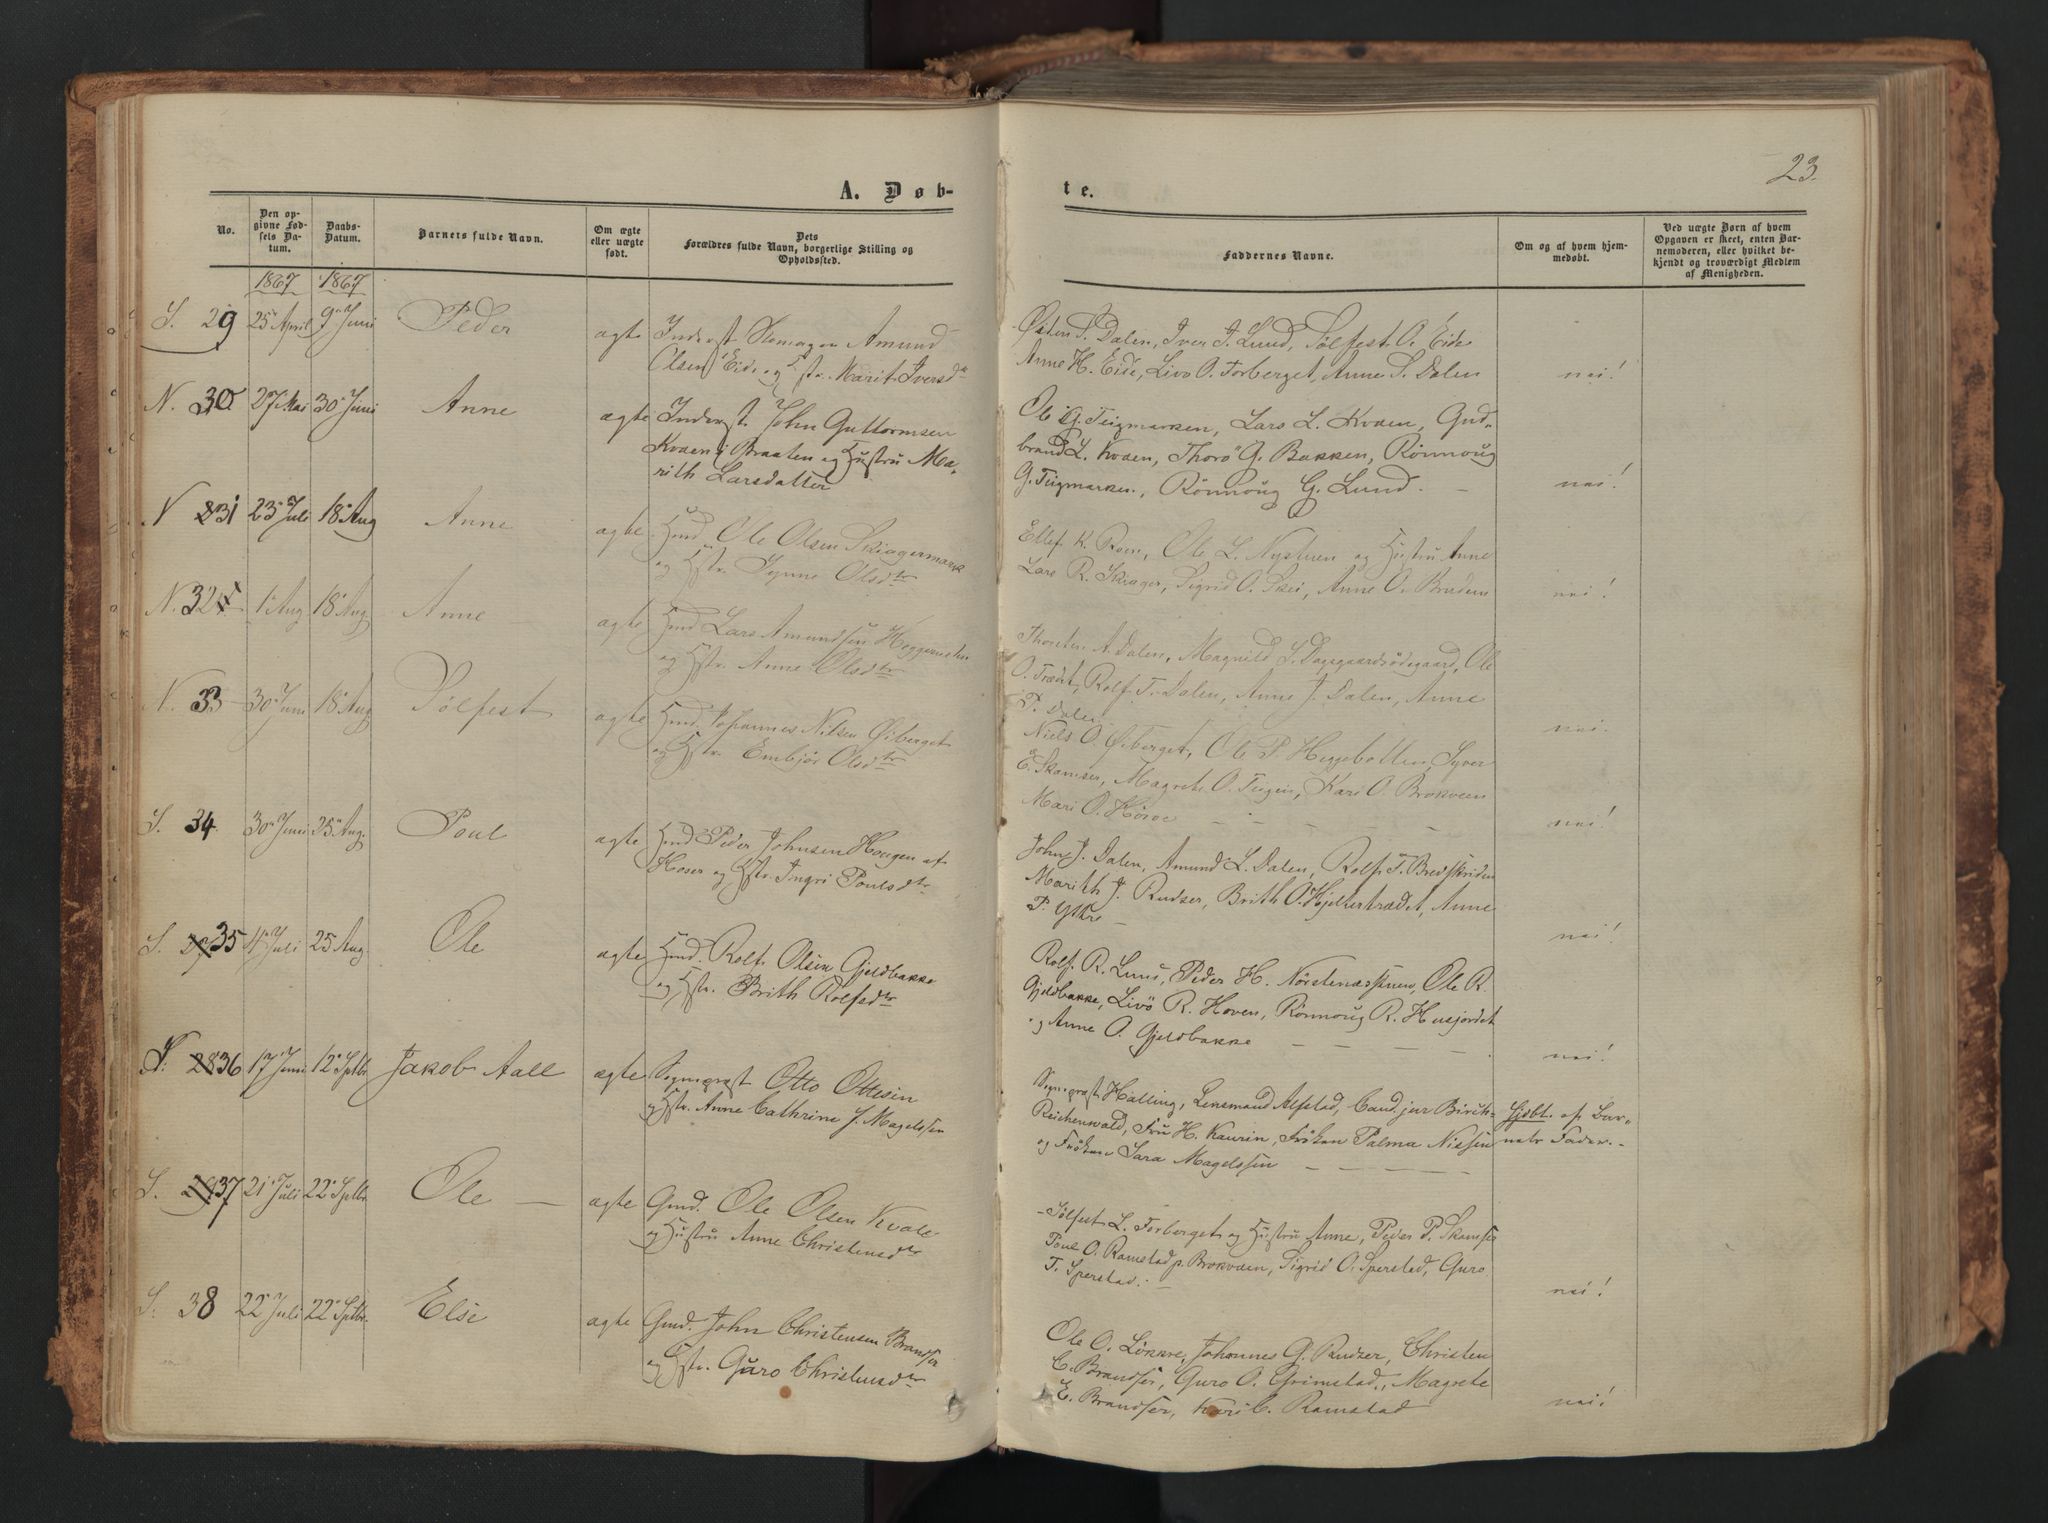 23.
A. Døb-
te.
No.
Den op-
givne Fød-
sels Da-
tum.
Daabs-
Datum.
Barnets fulde Navn.
Om ægte
eller uægte
født.
Dets
Forældres fulde Navn, borgerlige Stilling og
Opholdssted.
Faddernes Navne.
Om og af hvem hjem-
medøbt.
Ved uægte Børn af hvem
Opgaven er skeet, enten Bar-
nemoderen, eller hvilket be-
kjendt og troværdigt Medlem
af Menigheden.
1867 1867
S. 29 25 April 9 Juni Peder ægte Inderst Amund
Olsen Eide og Hstr. Marit Iversdtr
Østen S. Dalen, Iver J. Lund, Sølfest O. Eide
Anne H. Eide, Livø O. Forberget, Anne S. Dalen nei!
N. 30 27 Mai 30 Juni Anne ægte Inderst. John Guttormsen
Kvæen i Braaten og Hustru Ma-
rith Larsdatter
Ole G. Teigmarken, Lars L. Kvæen, Gud-
brand L. Kvæen, Thorø G. Bakken, Rønnoug
G. Teigmarken, Rønnoug G. Lund. — nei!
N 31 23 Juli 18 Aug Anne ægte Gmd Ole Olsen Skiagermark
og Hstr. Synne Olsdtr
Ellef K. Roen, Ole L. Nystuen og Hustru Anne
Lars R. Skiager, Sigrid O. Skei, Anne O. Bruden nei!
N. 32 1 Aug 18 Aug Anne ægte Gmd Lars Amundsen
og Hstr. Anne Olsdtr
Thorsten A. Dalen, Magnild S. Dagsgaardsødegaard, Ole
O. Trædt, Rolf T. Dalen, Anne J. Dalen, Anne
P. Dalen nei.
N. 33 30 Juni 18 Aug Sølfest ægte Gmd. Johannes Nilsen Øiberget
og Hstr. Embjør Olsdtr
Niels O. Øiberget, Ole P. Heggebotten, Syver
E. Skamser, Magrete O. Teigen, Kari O. Brokveen
Mari O. nei!
S. 34 30 Juni 25 Aug. Poul ægte Gmd Peder Johnsen Haugen af
Hoser og Hstr. Ingri Poulsdtr
John J. Dalen, Amund L. Dalen, Rolf T. Bredskriden
Marith J. Rudser, Brith O. Hjeltertrædet, Anne
P. Yttre — nei!
S. 35 4 Juli 25 Aug. Ole ægte Gmd. Rolf Olsen Gjeldbakke
og Hstr. Brith Rolfsdtr
Rolf R. Lund, Peder H. Nørstenæsstuen, Ole R.
Gjeldbakke, Livø R. Hoven, Rønnoug R. Husjordet
og Anne O. Gjeldbakke nei!
36 17 Juni 12 Septbr Jakob Aall ægte Sognepræst Otto Ottesen
og Hstr. Anne Cathrine J. Magelssen
Sognepræst Halling, Lensmand Alfstad, Cand. jur Birch-
Reichenwald, Fru H. Kaurin, Frøken Palma Nissen
og Frøken Sara Magelssen
Hjdbt. af Bar-
nets Fader. -
S. 37 21 Juli 22 Septbr Ole ægte Gmd. Ole Olsen Kvale
og Hustru Anne Christensdtr
Sølfest L. Forberget og Hustru Anne, Peder P. Skamser
Poul O. Ramstad p. Brokvæen, Sigrid O. Sperstad, Guro
T. Sperstad. — nei!
S. 38 22 Juli 22 Septbr. Else ægte Gmd. John Christensen Brandser
og Hstr. Guro Christensdtr
Ole O. Løkkre, Johannes G. Rudser, Christen
C. Brandser, Guro O. Grimstad, Magrete
E. Brandser, Kari C. Ramstad nei!